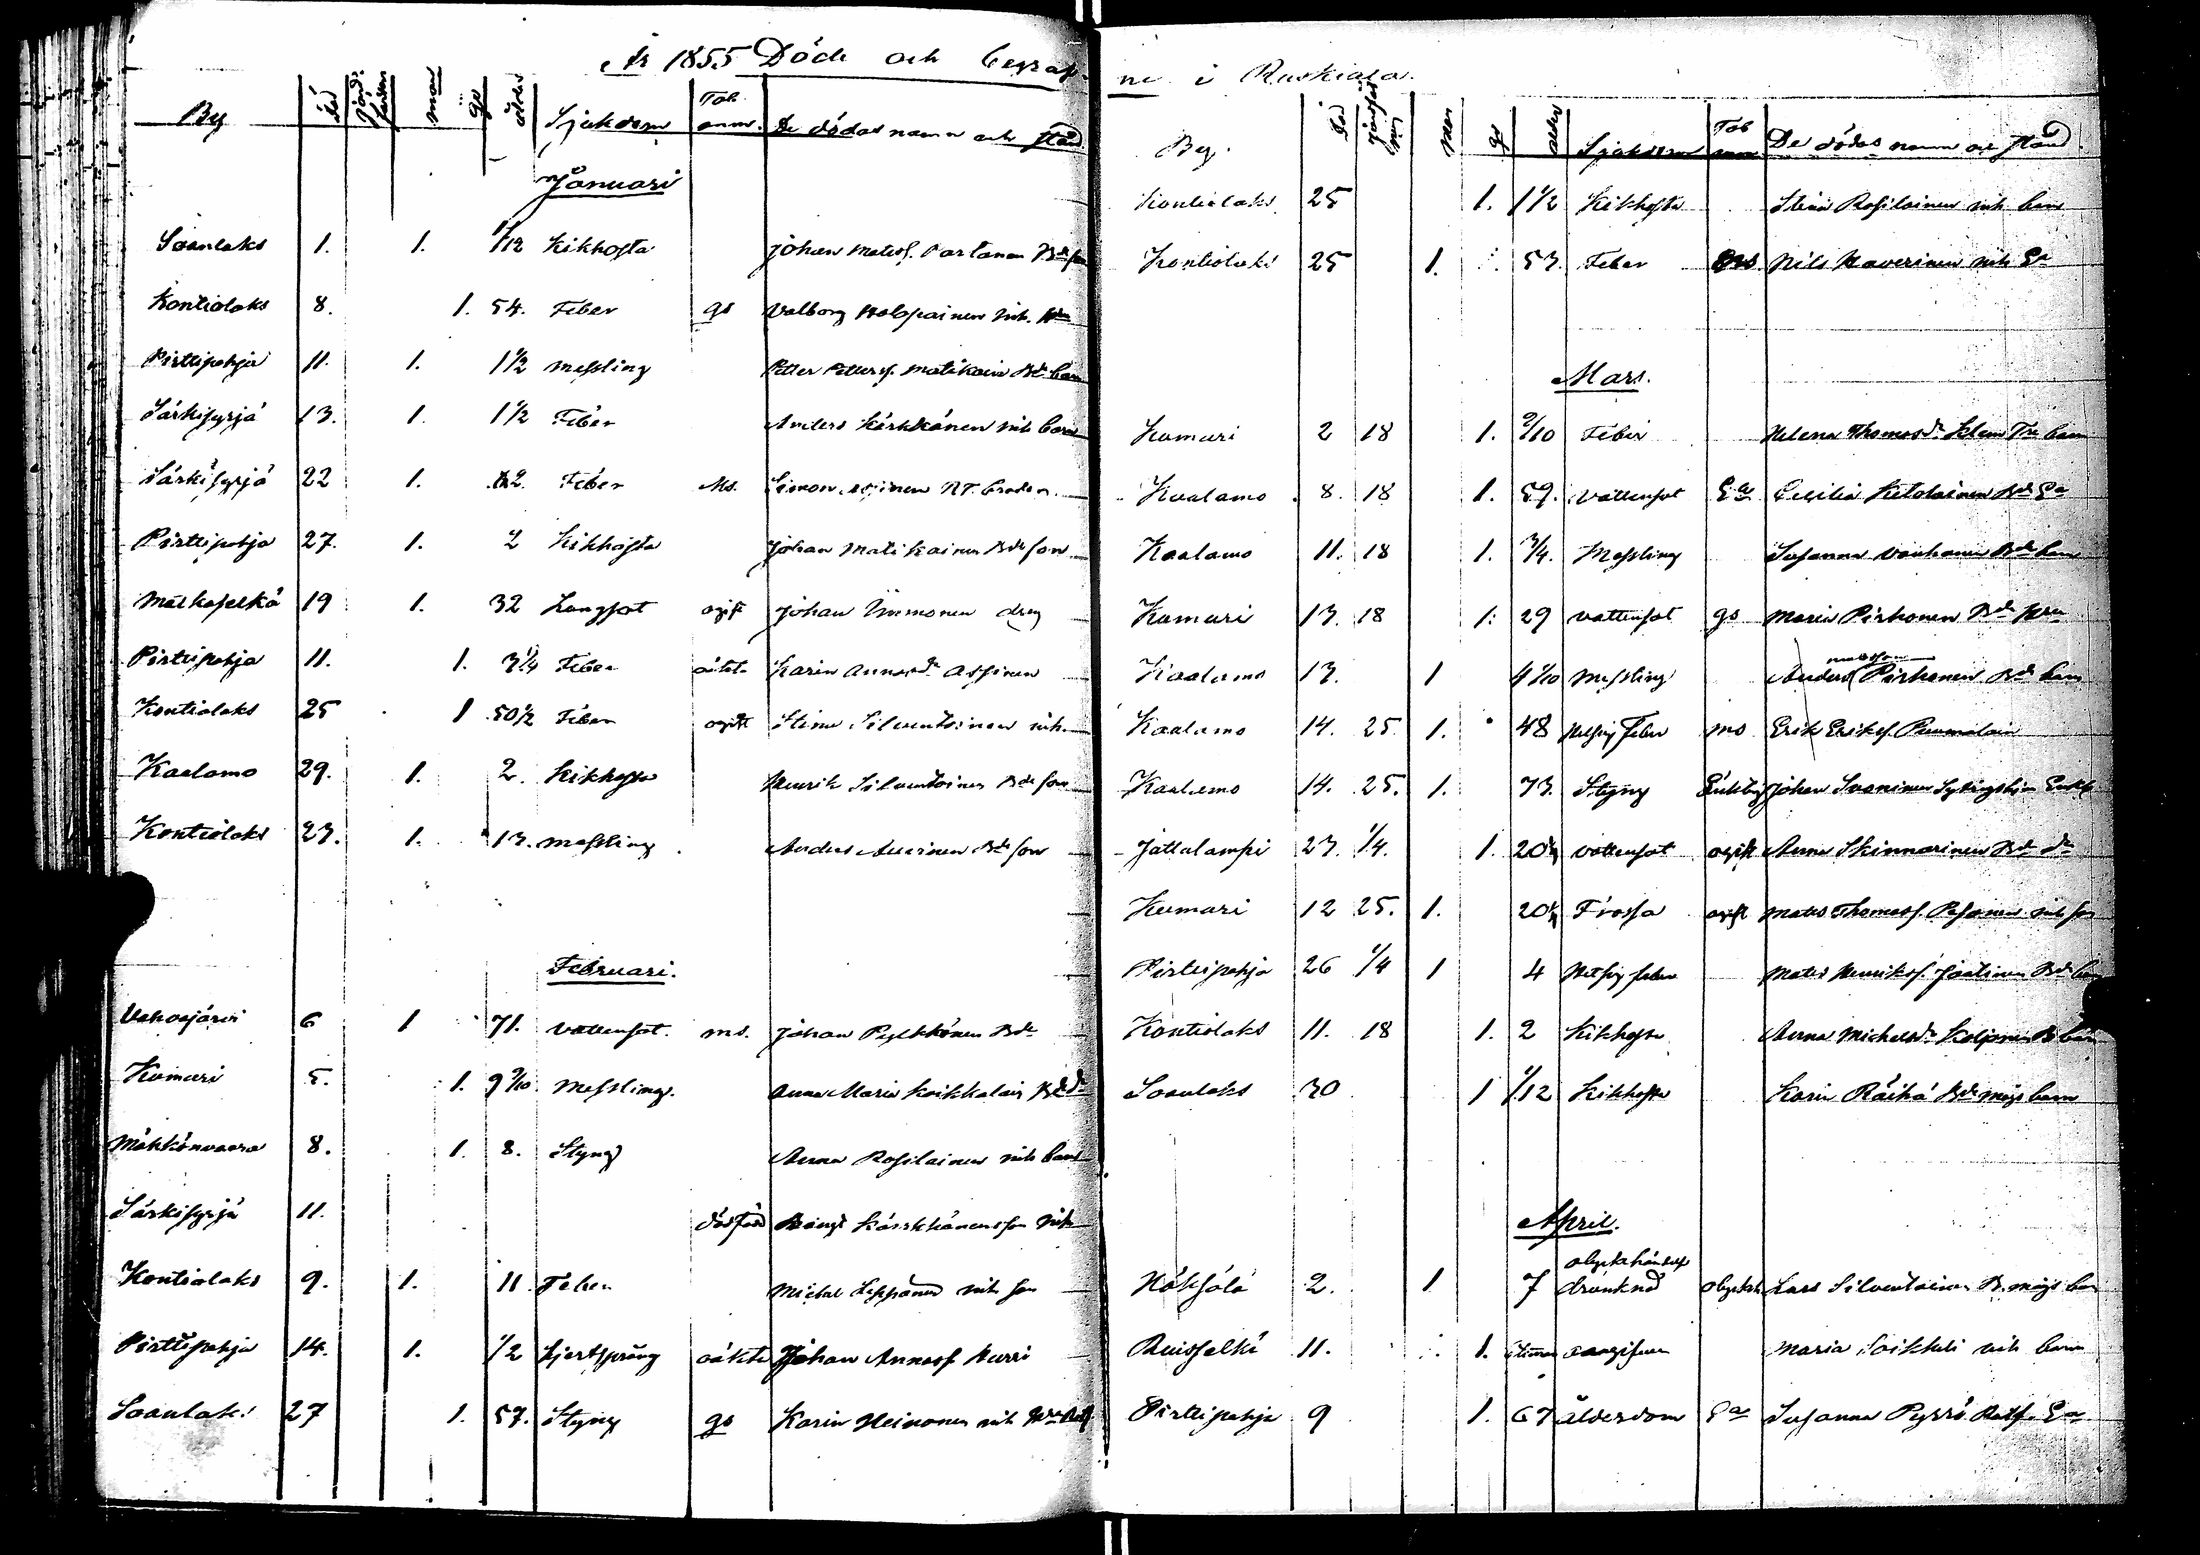 År 1855 Döde och begraf-
By död jord- mank qk ålder Sjukdom Tab. anm. De dödas namn och stånd
Januari
Soanlaks 1. 1. 1/12 Kikhosta Johan Matss. Partanen Bde son
Kontiolaks 8. 1. 54. Feber gs Valborg Holopainen inh.
Pirttipohja 11. 1. 1 1/2 Messling Petter Petterss. Matikain Bde barn
Särkisyrjä 13. 1. 1 1/2 Feber Anders Kärkkänen inh barn
Särkisyrjä 22 1. Feber Ms. Simon
Pirttipohja 27. 1. 2 Kikhosta Johan Matikainen Bde son
Matkaselkä 19 1. 32 Lungsot ogift Johan Immonen dräng
Pirttipohja 11. 1. 3 1/4 Feber oäkt. Karin Annasdr Assinen
Kontiolaks 25 1 50 1/2 Feber ogift Stina Silventoinen inh.
Kaalamo 29. 1. 2. Kikhosta Henrik Silventoinen Bde son
Kontiolaks 23. 1. 13. Messling Anders Bde son
Februari.
Vahvajärvi 6 1 71. Vattensot. ms. Johan Pylkkönen Bde
Kumuri 5. 1. 9 9/10 Messling. Anna Maria Koikkalain Bde dr
Mäkkönvaara 8. 1. 8. Styng Anna Rosilainen inh barn
Särkisyrjä 11. dödföd Kärkkänens son inh
Kontiolaks 9. 1. 11 Feber Michel Leppänen inh son
Pirttipohja 14. 1. 1/2 Hjertsprång oäkta Johan Annass Hurri
Soanlaks 27 1. 57. Styng gs Karin Heinonen inh
ne i Ruskiala.
By. död jordfäst. man qk ålder Sjukdom Tab anm De dödas namn och stånd
Kontiolaks 25 1. 1 1/2 Kikhosta Stina Rosilainen inh barn
Kontiolaks 25 1. 53. Feber Nils Kaverinen inh
Mars.
Kumuri 2 18 1. 9/10 Feber Helena Thomasdr barn
Kaalamo 8. 18 1. 59. Vattensot Cecilia Ketolainen Bde Ea
Kaalamo 11. 18 1. 3/4. Messling Susanna Vanhanen Bde barn
Kumuri 13. 18 1. 29 Vattensot gs Maria Pirhonen Bde
Kaalamo 13. 1 4 1/10 Messling Anders Matsson Pirhonen Bde barn
Kaalamo 14. 25. 1. 48 Hetsig Feber ms Erik Erikss. Puumalain
Kaalamo 14. 25. 1. 73. Styng Enkling Johan Ivaninen
Jattalampi 23. 1/4. 1. 20 Vattensot ogift Anna Skinnarinen Bde dr
Kumuri 12 25. 1. 20 Frossa ogift Mats Thomass. Pesonen inh son
Pirttipohja 26 1/4 1 4 Hetsig feber Mats Henrikss. Jaatinen Bde barn
Kontiolaks 11. 18 1. 2 Kikhosta Anna Michelsdr. B barn
Soanlaks 30 1 1/12 Kikhosta Karin Räihä Bde mågs barn
April.
Näksälä 2. 1 7 olyckshändelse drunknad olycksh Lars Silventoinen B. mågs barn
Ruisselkä 11. 1. timar oangifven Maria Soikkeli inh barn
Pirttipohja 9 1. 67 ålderdom Ea Susanna Pyrrö